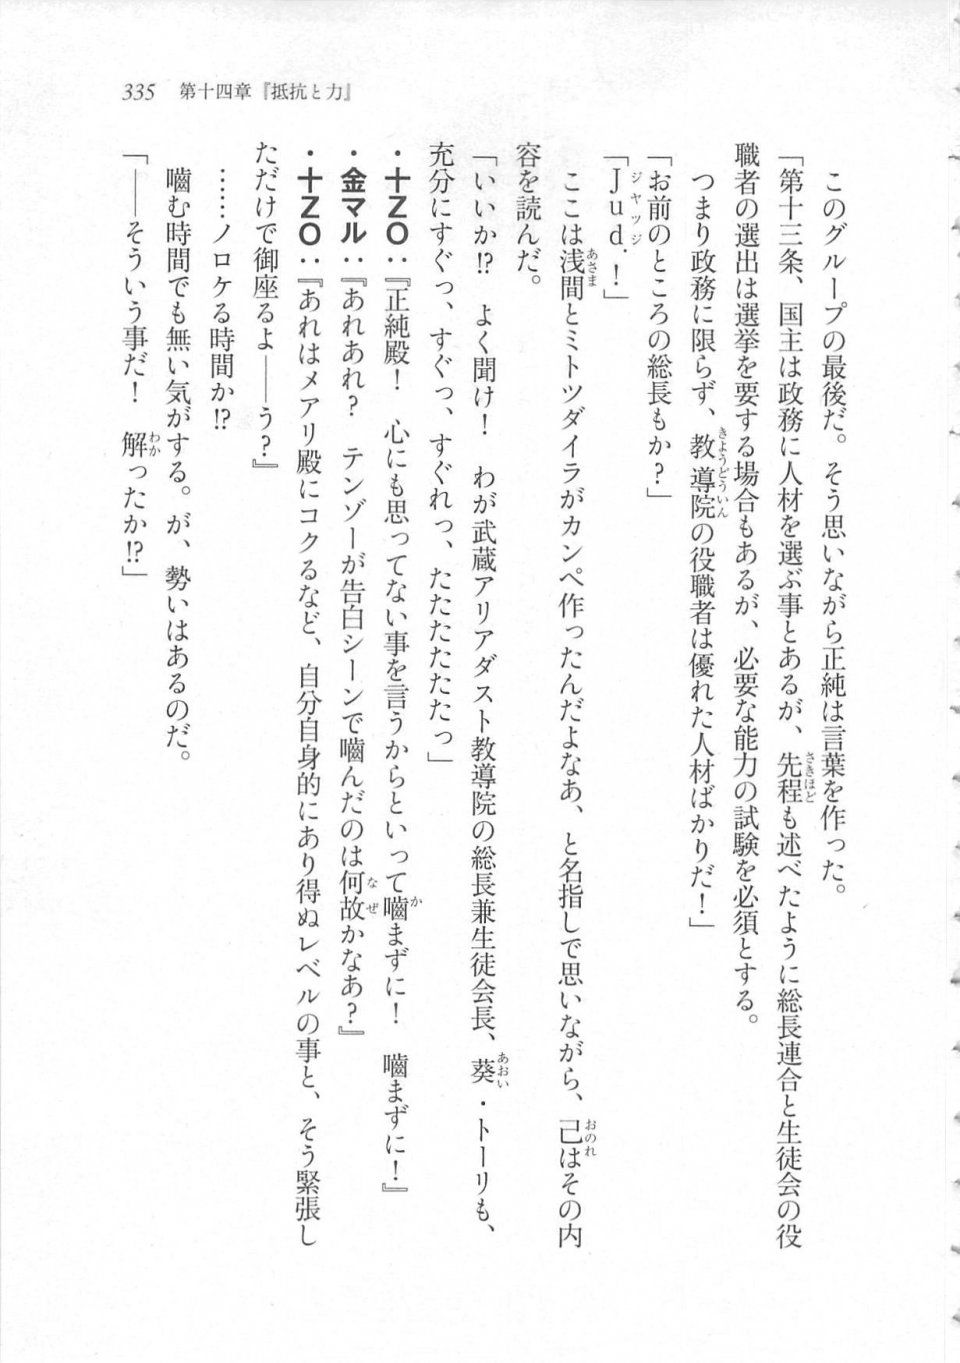 335 第十四章『抵抗と力』
このグループの最後だ。そう思いながら正純は言葉を作った。
「第十三条、国主は政務に人材を選ぶ事とあるが、先程も述べたように総長連合と生徒会の役
職者の選出は選挙を要する場合もあるが、必要な能力の試験を必須とする。
つまり政務に限らず、教導院の役職者は優れた人材ばかりだ！」
「お前のところの総長もか？」
「Ｊｕｄ．！」
ここは浅間とミトツダイラがカンペ作ったんだよなあ、と名指しで思いながら、己はその内
容を読んだ。
「いいか⁉　よく聞け！　わが武蔵アリアダスト教導院の総長兼生徒会長、葵・トーリも、
充分にすぐっ、すぐっ、すぐれっ、たたたたたたっ」
・十ＺＯ：『正純殿！　心にも思ってない事を言うからといって嚙まずに！　嚙まずに！』
・金マル：『あれあれ？　テンゾーが告白シーンで嚙んだのは何故かなあ？』
・十ＺＯ：『あれはメアリ殿にコクるなど、自分自身的にあり得ぬレベルの事と、そう緊張し
ただけで御座るよ――う？』
……ノロケる時間か⁉
嚙む時間でも無い気がする。が、勢いはあるのだ。
「――そういう事だ！　解ったか⁉」